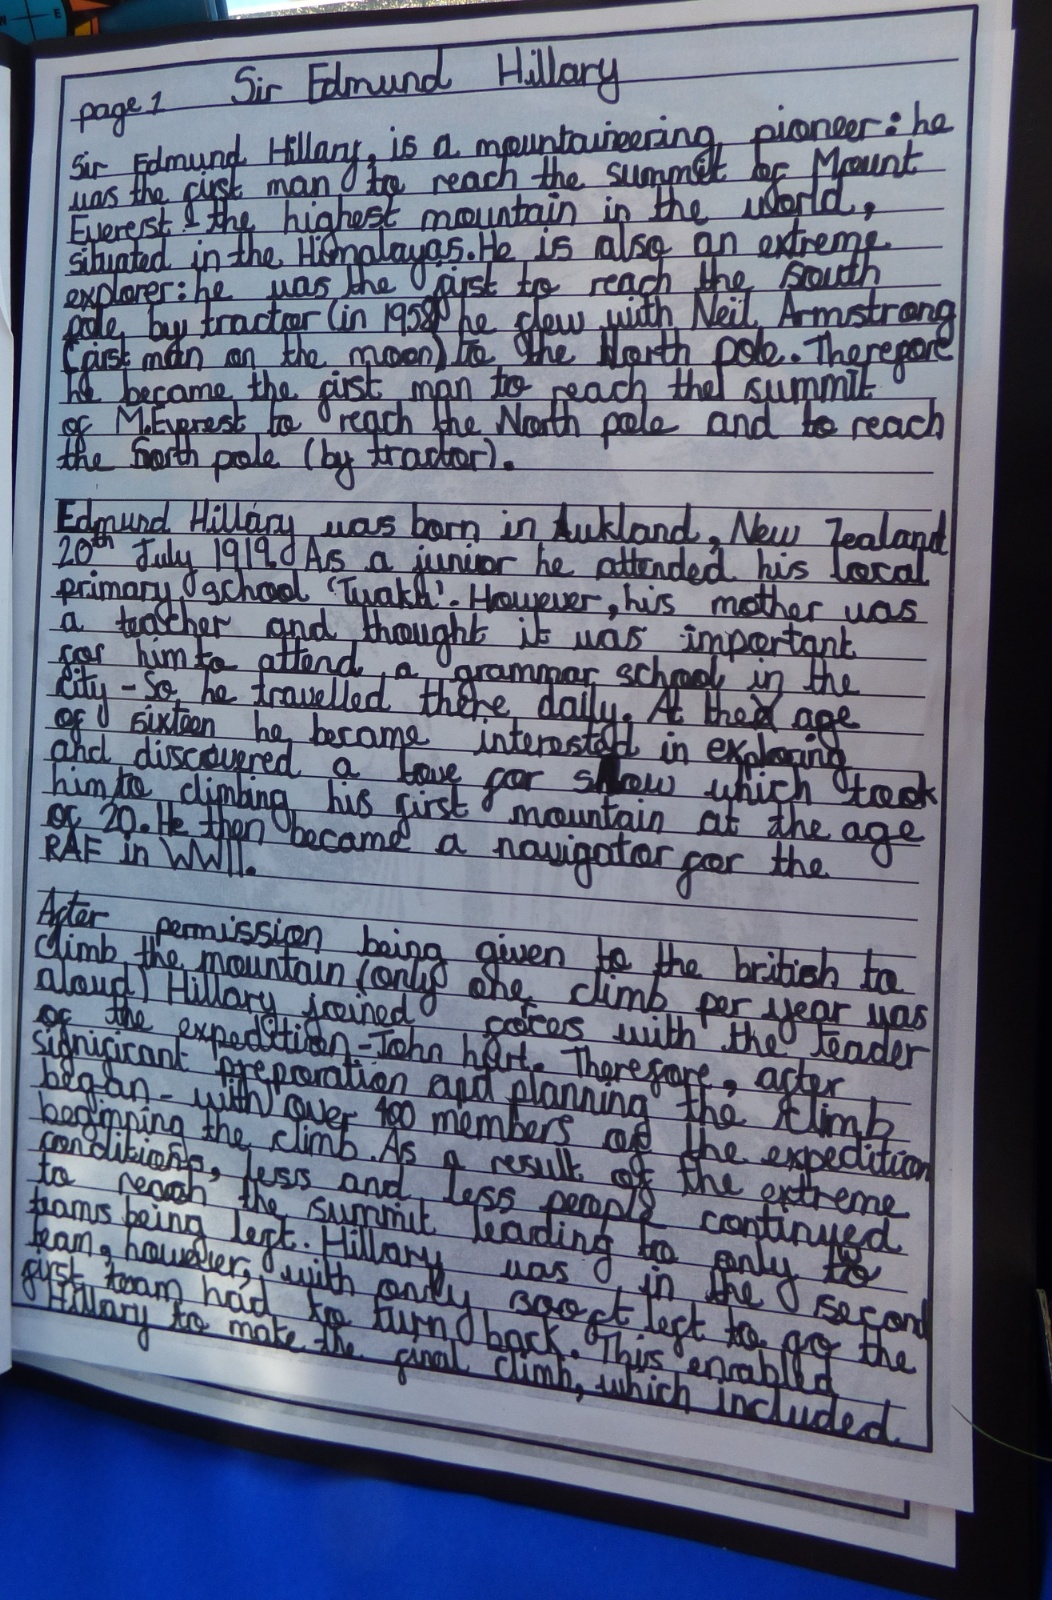 W E
page 1 Sir Edmund Hillary
Sir Edmund Hillary, is a mountaineering pioneer: he
was the first man to reach the summit of Mount
Everest - the highest mountain in the world,
situated in the Himalayas. He is also an extreme
explorer: he was the first to reach the south
pole by tractor (in 1958) he flew with Neil Armstrong
(first man on the moon) to the North pole. Therefore
he became the first man to reach the summit
of M.Everest to reach the North pole and to reach
the South pole (by tractor).
Edmund Hillary was born in Aukland, New Zealand
20th July 1919. As a junior he attended his local
primary school 'Tuakh'. However, his mother was
a teather and thought it was important
for him to attend a grammar school in the
city - So he travelled there daily. At the age
of sixteen he became interested in exploring
and discovered a love for snow which took
him to climbing his first mountain at the age
of 20. He then became a navigator for the
RAF in WWII.
After permission being given to the british to
climb the mountain (only one climb per year was
aloud) Hillary joined forces with the leader
of the expedition - John hunt. Therefore, after
significant preparation and planning the climb
began - with over 400 members of the expedition
beginning the climb. As a result of the extreme
conditions, less and less people continued
to reach the summit leading to only to
teams being left. Hillary was in the second
team, however, with only 300ft left to go the
first team had to turn back. This enabled
Hillary to make the final climb, which included